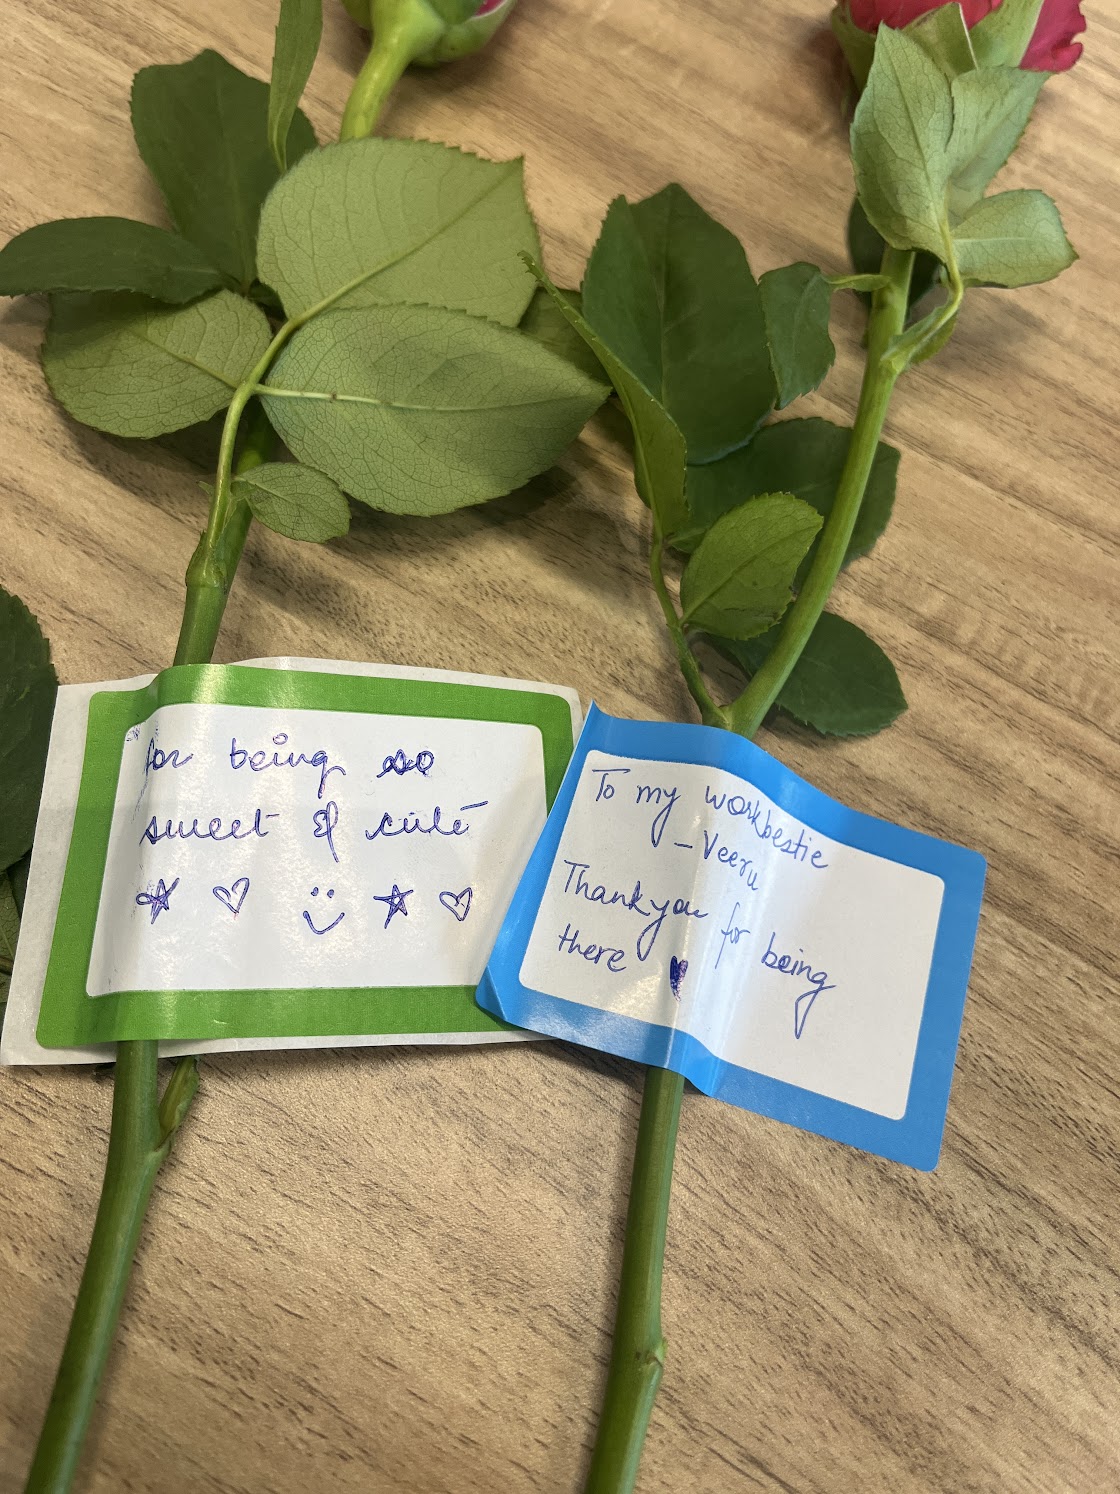 for being so
sweet & cute
To my workbestie
-Veeru
Thankyou for being
there